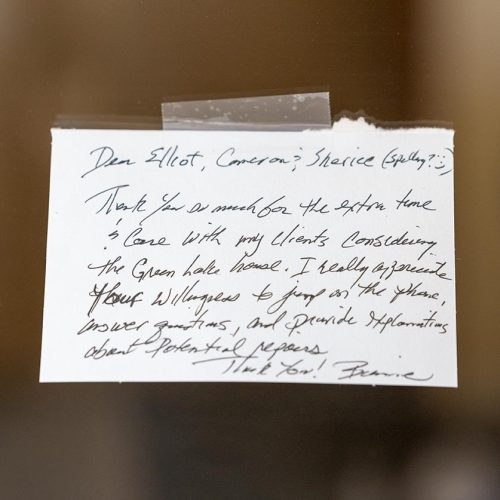 Dear Elliot, Cameron & Sharice (spelling? :)
Thank You so much for the extra time
& Care with my clients considering
the Green Lake house. I really appreciate
your willingness to jump on the phone,
answer questions, and provide explanations
about potential repairs
Thank You!